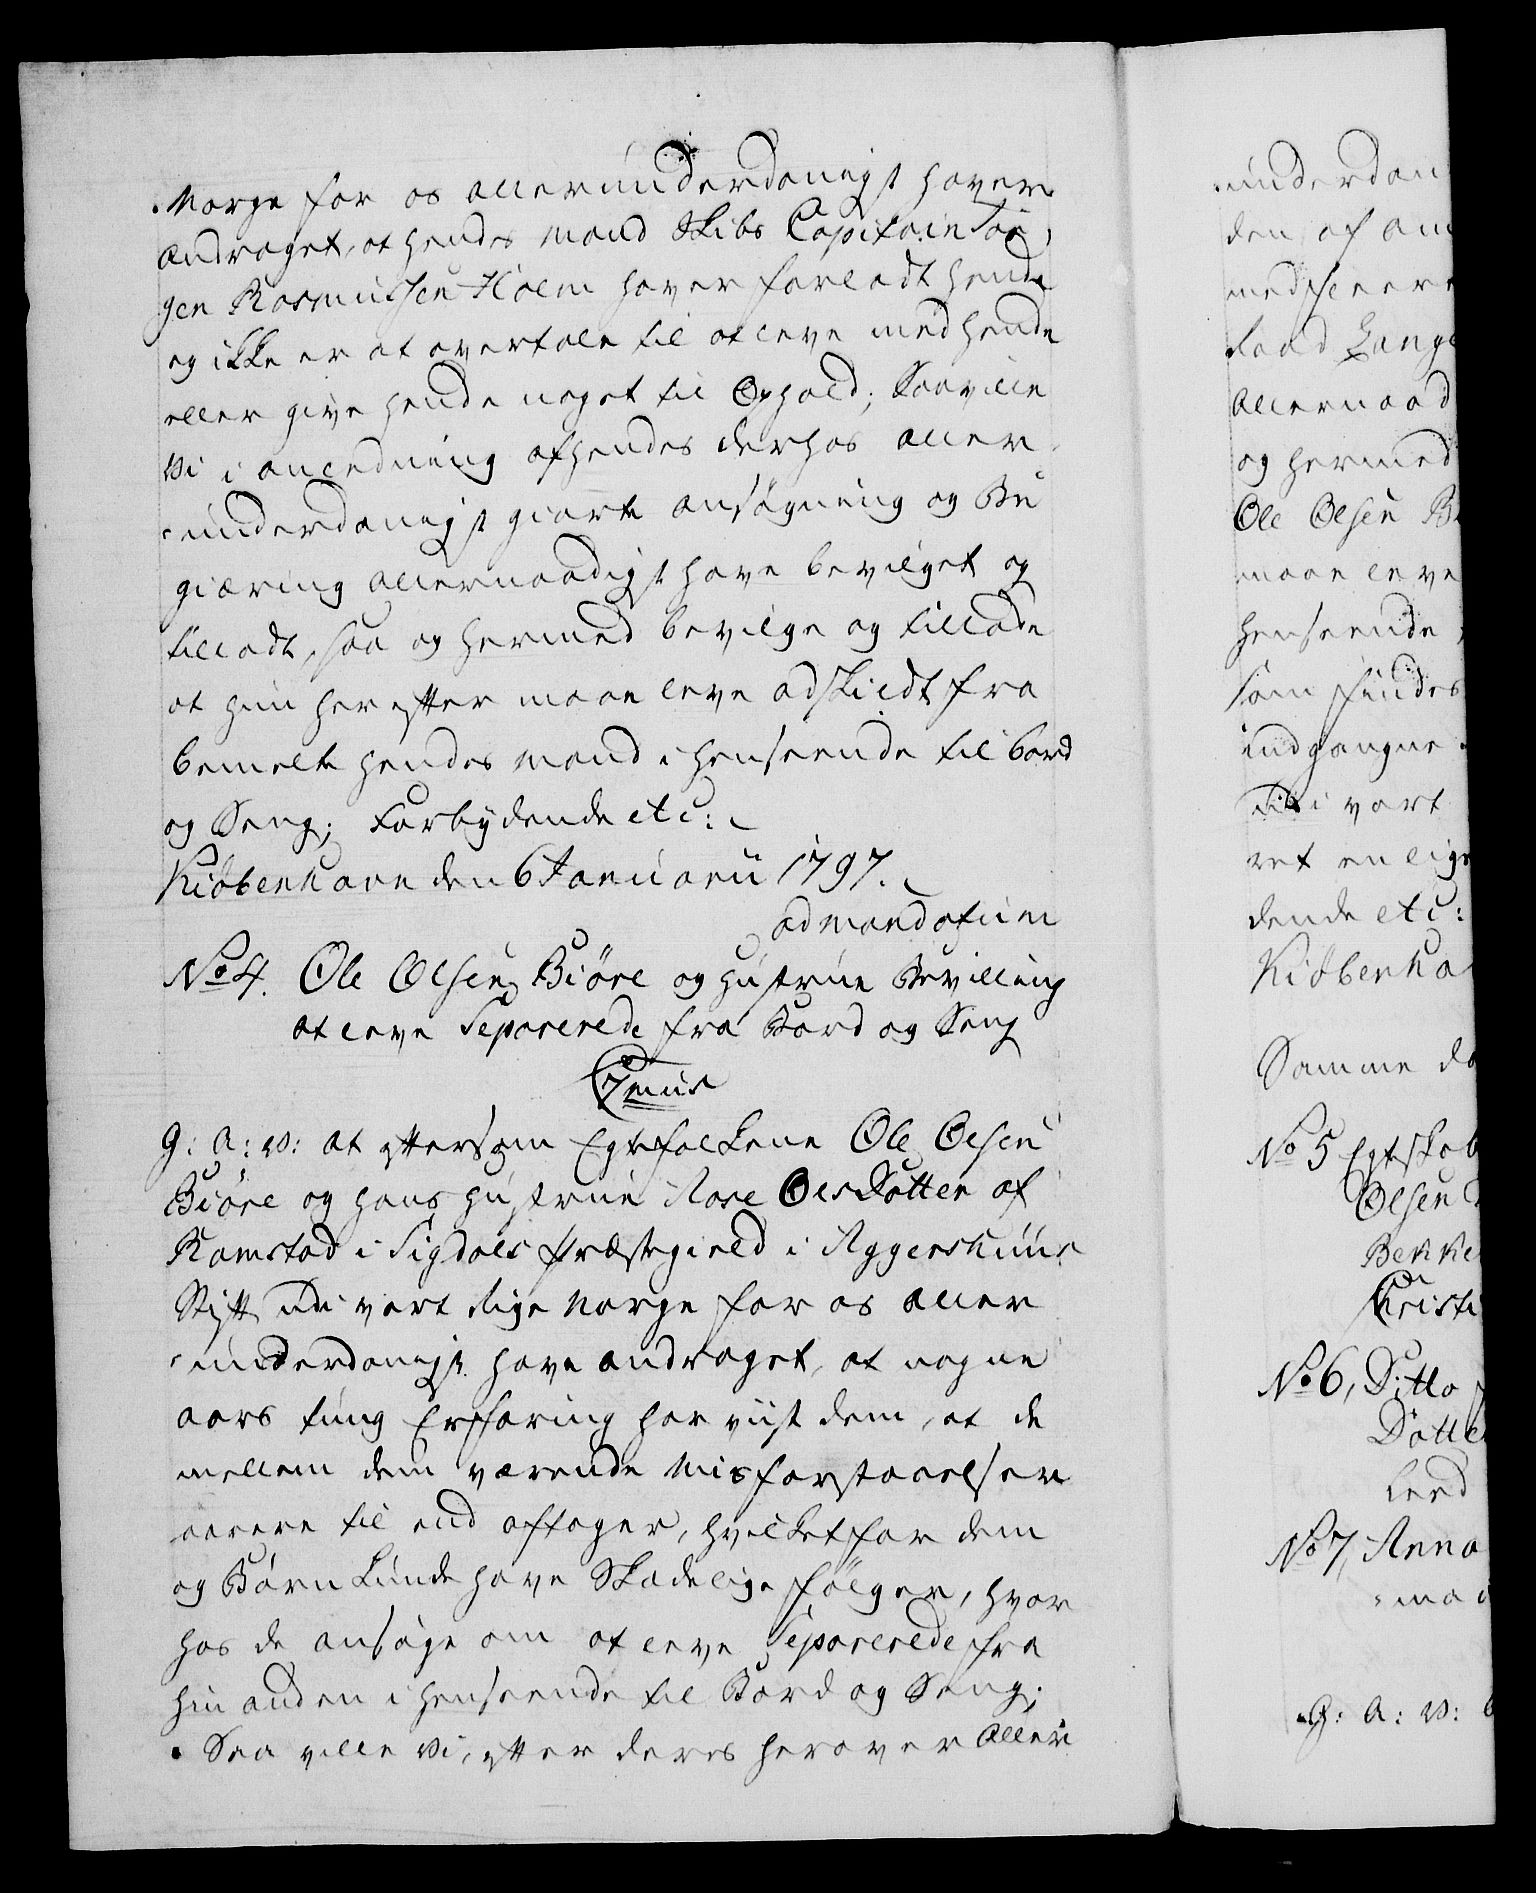 Norge for os allerunderdanigst haver
andraget, at hendes Mand Skibs Capitain Jør
gen Rasmussen Holm haver forladt hende
og ikke er at overtale til at leve med hende
eller give hende noget til Ophold; Saa ville
Vi i anledning af hendes derhos aller
underdanigst giorte ansøgning og Be
giæring allernaadigst have bevilget og
tilladt, saa og hermed bevilge og tillade
at hun herefter maae leve adskildt fra
bemelte hendes Mand i henseende til bord
og Seng; Forbydende etc:
Kiøbenhavn den 6 Januarii 1797.
ad mandatum
No 4. Ole Olsen Biøre og hustrue Bevilling
at leve Separerede fra Bord og Seng
C 7mus
G: A: V: at eftersom Egtefolkene Ole Olsen
Biøre og hans hustrue Aase OlsDatter af
Ramstad i Sigdals Præstegield i Aggershuus
Stift udi vort Rige Norge for os aller
underdanigst have andraget, at nogne
aars tung Erfaring har viist dem, at de
mellem dem værende Misforstaaelser
veere til end aftager, hvilket for dem
og Børn kunde have Skadelige følger, hvor
hos de ansøge om at leve Separerede fra
hin anden i henseende til Bord og Seng;
Saa ville Vi, efter deres herover Aller
underdan
den af am
med fleere
raad Lange
Allernaad
og hermed
Ole Olsen B
maae leve
henseende
som findes
indgangne
udi vort
ret en lige
dende etc:
Kiøbenha
Samme da
No 5 Egtskab
Olsen
Bekke
Christi
No 6, Ditto
Datte
Lerd
No 7, Anna
ma
G: A: V: